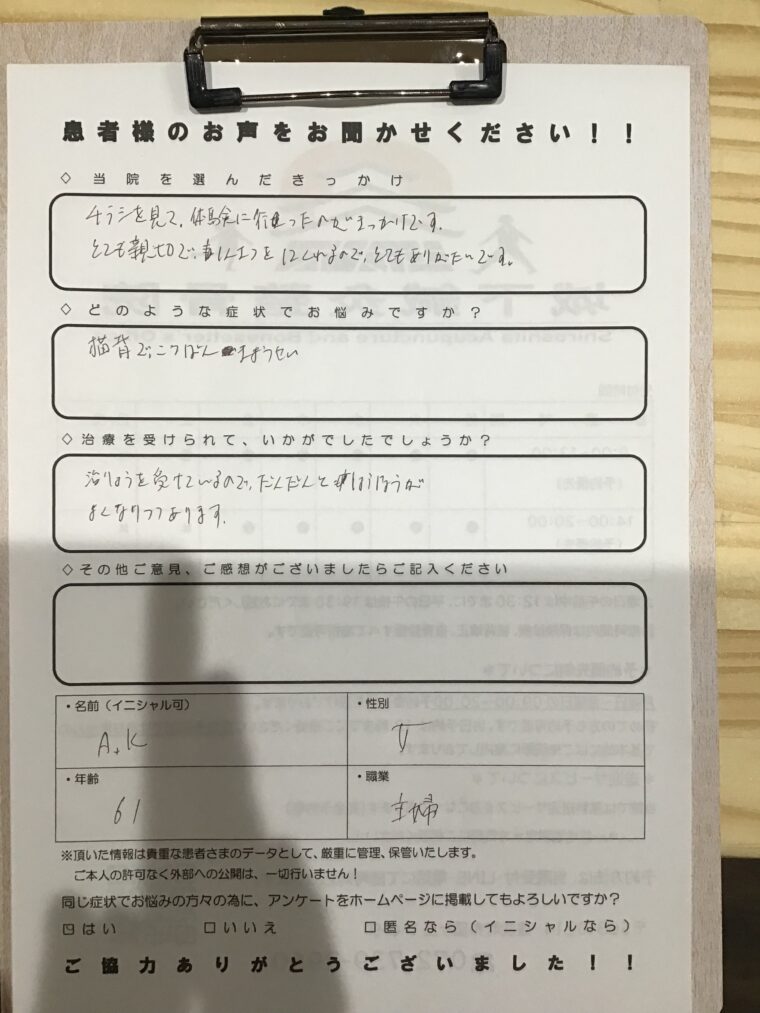 患者様のお声をお聞かせください！！
◇当院を選んだきっかけ
チラシを見て、体験に行ったのがきっかけです。
とても親切で、をしてくれるので、とてもありがたいです。
◇どのような症状でお悩みですか？
猫背で、こつばんきょうせい
◇治療を受けられて、いかがでしたでしょうか？
治りょうを受けているので、だんだんと
よくなりつつあります。
◇その他ご意見、ご感想がございましたらご記入ください
・名前（イニシャル可）
・性別
A,K
・年齢
・職業
61
主婦
※頂いた情報は貴重な患者さまのデータとして、厳重に管理、保管いたします。
ご本人の許可なく外部への公開は、一切行いません！
同じ症状でお悩みの方々の為に、アンケートをホームページに掲載してもよろしいですか？
☑はい □いいえ □匿名なら（イニシャルなら）
ご協力ありがとうございました！！